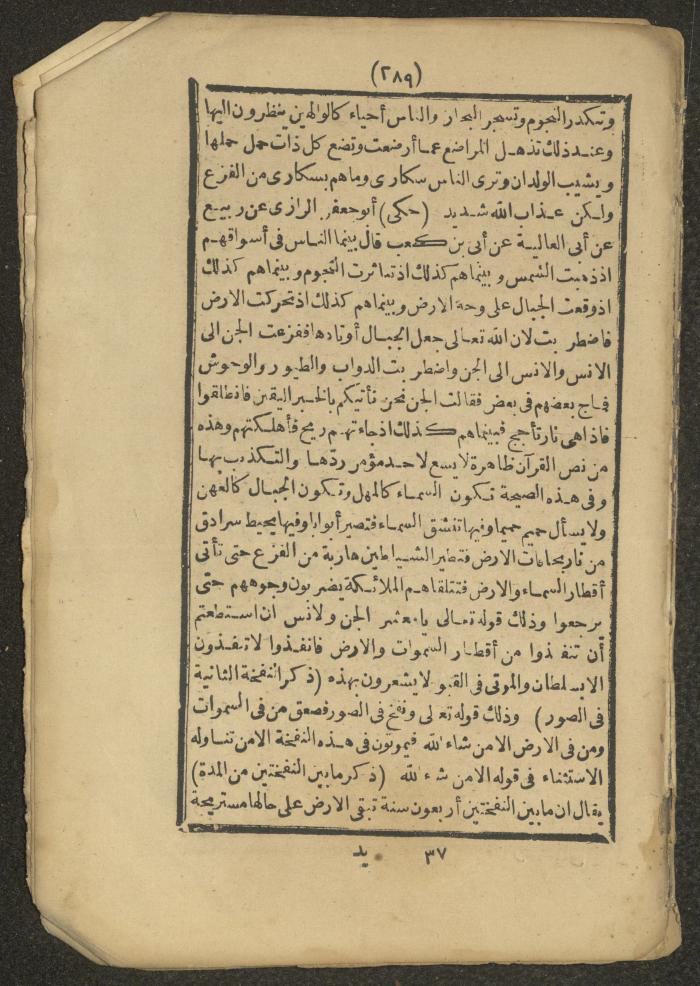 (٢٨٩)
وتنكدر النجوم وتسجر البحار والناس أحياء كالوالهين ينظرون اليها
وعند ذلك تذهل المراضع عما أرضعت وتضع كل ذات حمل حملها
ويشيب الولدان وترى الناس سكارى وما هم بسكارى من الفزع
ولكن عذاب الله شديد (حكى) أبو جعفر الرازى عن ربيع
عن أبى العالية عن أبى بن كعب قال بينما الناس فى أسواقهم
اذ ذهبت الشمس وبينماهم كذلك اذ تناثرت النجوم وبينماهم كذلك
اذ وقعت الجبال على وجه الارض وبينماهم كذلك اذ تحركت الارض
فاضطربت لان الله تعالى جعل الجبال أوتادها ففزعت الجن الى
الانس والانس الى الجن واضطربت الدواب والطيور والوحوش
فماج بعضهم فى بعض فقالت الجن نحن نأتيكم بالخبر اليقين فانطلقوا
فاذا هى نار تأجج فبينماهم كذلك اذ جاءتهم ريح فأهلكتهم وهذه
من نص القرآن ظاهرة لا يسع لاحد مؤمن ردها والتكذيب بها
وفى هذه الصيحة تكون السماء كالمهل وتكون الجبال كالعهن
ولا يسأل حميم حميما وفيها تنشق السماء فتصير أبوابا وفيها يحيط سرادق
من نار بحافات الارض فتطير الشياطين هاربة من الفزع حتى تأتى
أقطار السماء والارض فتتلقاهم الملائكة يضربون وجوههم حتى
يرجعوا وذلك قوله تعالى يا معشر الجن والانس ان استطعتم
أن تنفذوا من أقطار السموات والارض فانفذوا لا تنفذون
الا بسلطان والموتى فى القبور لا يشعرون بهذه (ذكر النفخة الثانية
فى الصور) وذلك قوله تعالى ونفخ فى الصور فصعق من فى السموات
ومن فى الارض الا من شاء الله فيموتون فى هذه النفخة الا من تناوله
الاستثناء فى قوله الا من شاء الله (ذكر ما بين النفختين من المدة)
يقال ان ما بين النفختين أربعون سنة تبقى الارض على حالها مستريحة
٣٧ يد